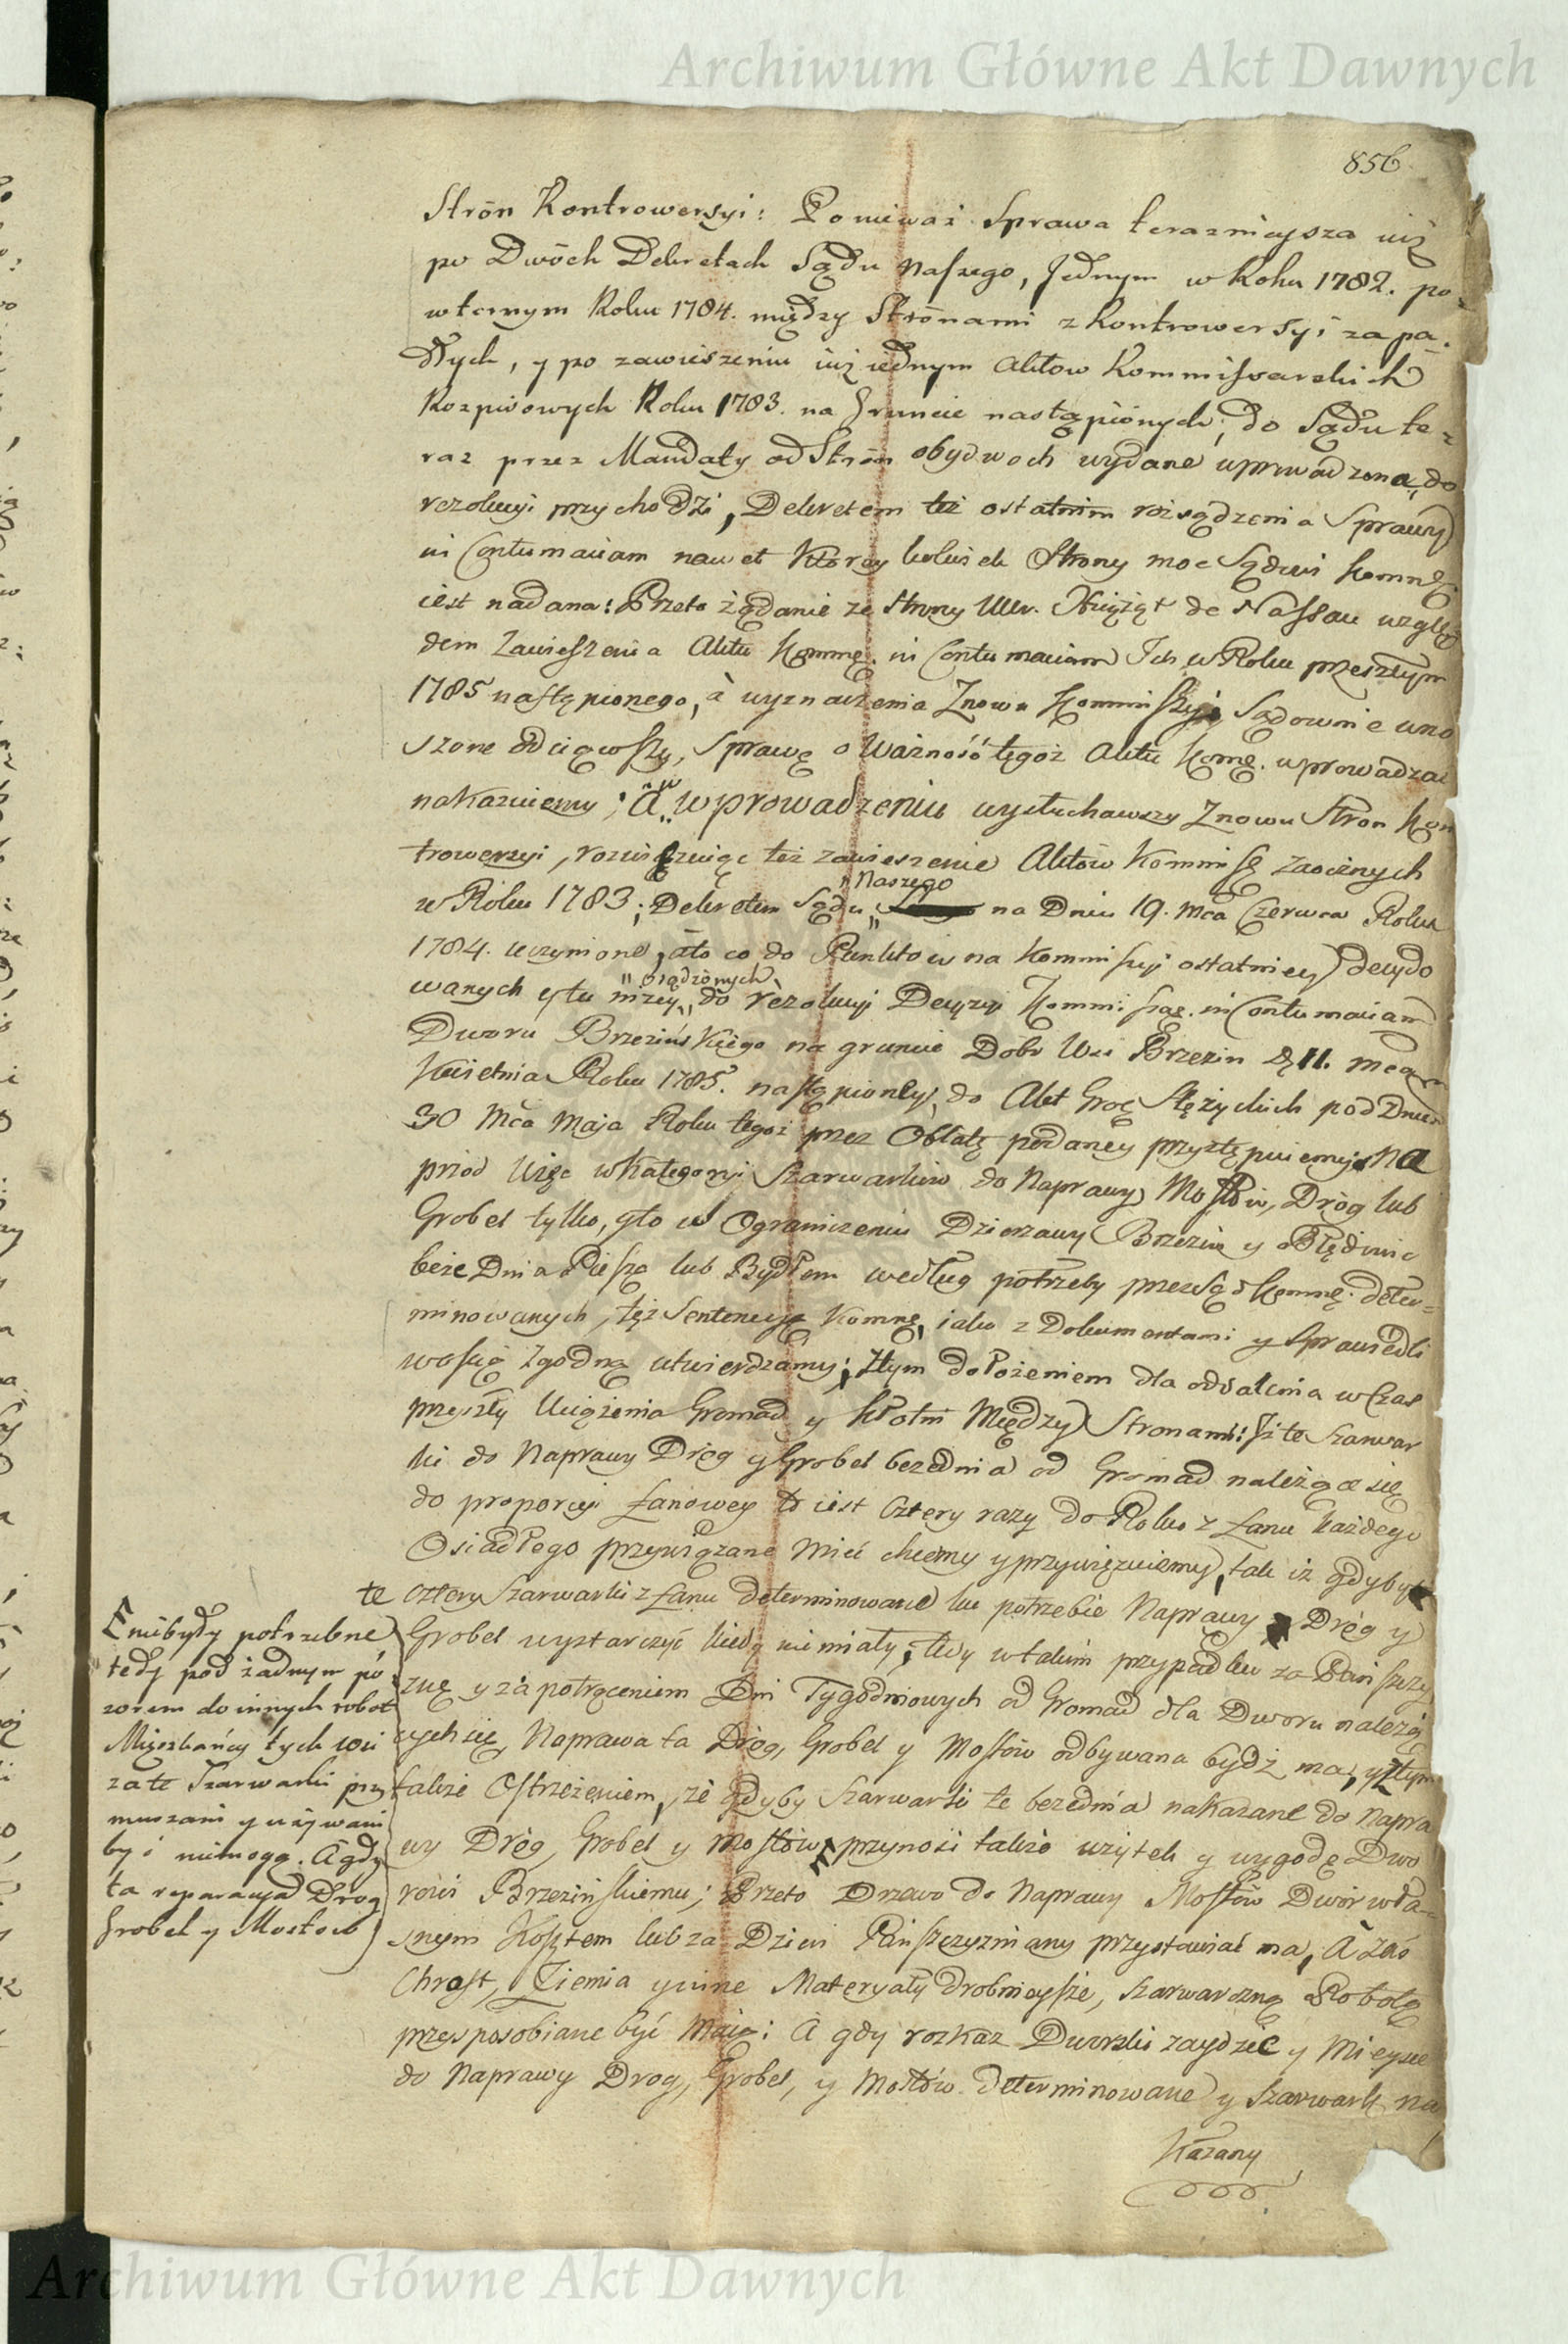 Archiwum Główne Akt Dawnych
856
Strón Kontrowersyi: Poniewaź Sprawa teraznieysza iuż
po Dwóch Dekretach Sądu Naszego, Jednym w Roku 1782. po-
wtornym Roku 1784. między Strónami z Kontrowersyi zapa-
dłych, y po zawieszeniu iuż iednym Aktow Kommissarskich
Rozpisowych Roku 1783. na Gruncie nastąpionych, do Sądu te-
raz przez Mandaty od Strón obydwoch wydane uprowadzona, do
rezolucyi przychodzi, Dekretem też ostatnim rozsądzenia Sprawy
in Contumaciam nawet Ktorey kolwiek Strony moc Sądowi Kommę.
iest nadana: Przeto żądanie ze Strony Ww. Xiążąt de Nassau wzglę
dem Zawieszenia Aktu Kommę. in Contumaciam Ich w Roku przeszłym
1785 nastąpionego, à wyznaczenia Znowu Kommissyi, Sądownie wno
szone odciąwszy, Sprawę o Ważność tegoż Aktu Komę. uprowadzać
nakazuiemy; A w wprowadzeniu wysłuchawszy Znowu Stron Kon
trowersyi, rozwięzuiąc też zawieszenie Aktów Kommissę zaocznych
w Roku 1783; Dekretem Sądu Naszego na Dniu 19. Mca Czerwca Roku
1784. uczynione, àto co do Punktow na Kommissyi ostatniey decydo
wanych y tu niżey osądzonych, do rezolucyi Decyzyi Kommissar. in Contumaciam
Dworu Brzezińskiego na gruncie Dobr Wsi Brzezin D. 11. Mca
Kwietnia Roku 1785. nastąpioney, do Akt Grodz Stężyckich pod Dniem
30 Mca Maja Roku tegoż przez Oblatę podaney przystępuiemy. Na
przód Więc w Kategoryi Szarwarkow do Naprawy Mostow, Dróg lub
Grobel tylko, yto w Ograniczeniu Dzierzawy Brzezin y Błędowic
beze Dnia Pieszo lub Bydłem według potrzeby przez Sąd Kommę. deter-
minowanych, tęż Sentencyę Kommę, iako z Dokumentami y Sprawiedli
wością Zgodną utwierdzamy; Ztym dołożeniem dla oddalenia w Czas
przyszły Uciążenia Gromad y Kłotni Między Stronami: Jż te Szarwar
ki do Naprawy Dróg y Grobel bezednia od Gromad należące się
do proporcyi Łanowey to iest cztery razy do Roku z Łanu każdego
Osiadłego przywiązane Mieć chcemy y przywięzuiemy, tak iż gdyby
te cztery Szarwarki z Łanu determinowane ku potrzebie Naprawy Dróg y
Grobel wystarczyć kiedy nie miały; tedy w takim przypadku za Pańszczy
znę y za potrąceniem Dni Tygodniowych od Gromad dla Dworu należą
cych się, Naprawa ta Dróg, Grobel y Mostów odbywana bydź ma, y z tym
także Ostrzeżeniem, że gdyby Szarwarki te bezednia nakazane do Napra
wy Dróg, Grobel y Mostów, przynosi także użytek y wygodę Dwo
rowi Brzezińskiemu; Przeto Drzewo do Naprawy Mostów Dwór wła-
snym Kosztem lub za Dzień Pańszczyzniany przystawiać ma, A zaś
Chrost, Ziemia y inne Materyały drobnieysze, szarwarczną Robotą
przysposobiane być Maią: A gdy rozkaz Dworski zaydzie y Mieysce
do Naprawy Drog, Grobel, y Mostów determinowane y Szarwark na
Kazany
Enibyły potrzebne
tedy pod żadnym po
zorem do innych robot
Mięszkańcy tych wsi
za te Szarwarki przy
muszani y używani
być niemogą. A gdy
ta reparacya Drog
Grobel y Mostow
Archiwum Główne Akt Dawnych